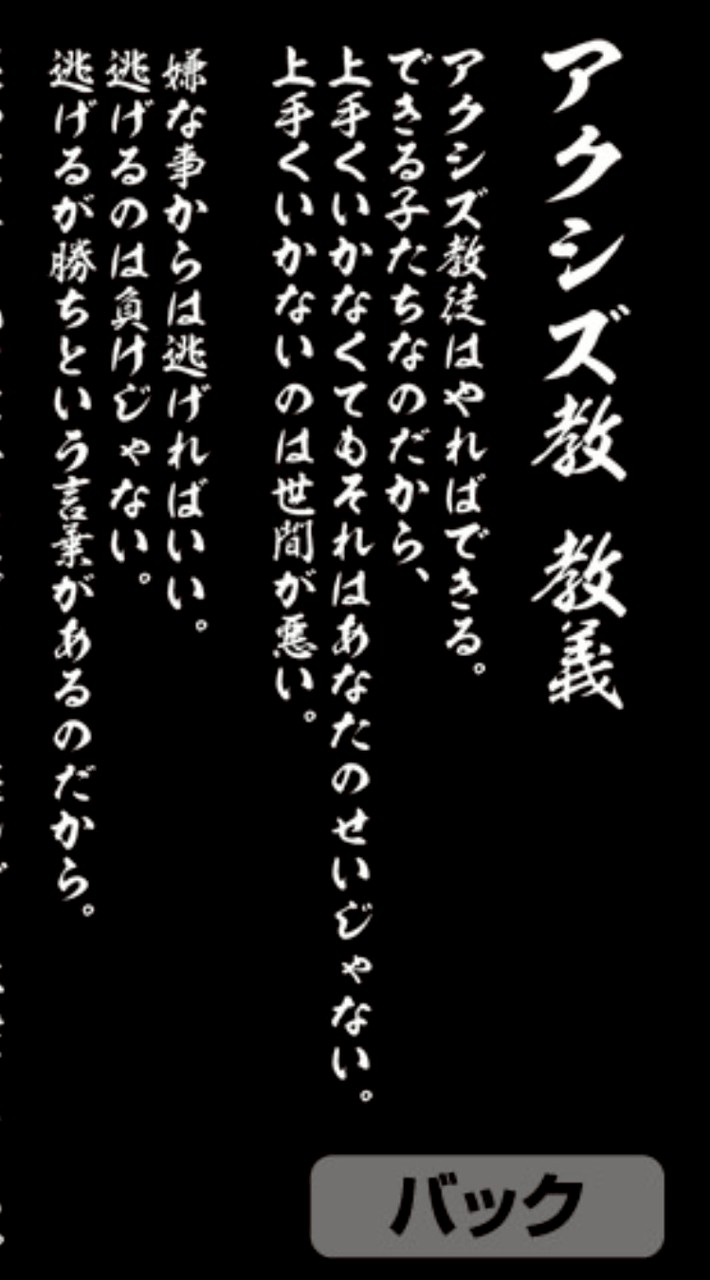 アクシズ教　教義
アクシズ教徒はやればできる。
できる子たちなのだから、
上手くいかなくてもそれはあなたのせいじゃない。
上手くいかないのは世間が悪い。
嫌な事からは逃げればいい。
逃げるのは負けじゃない。
逃げるが勝ちという言葉があるのだから。
バック